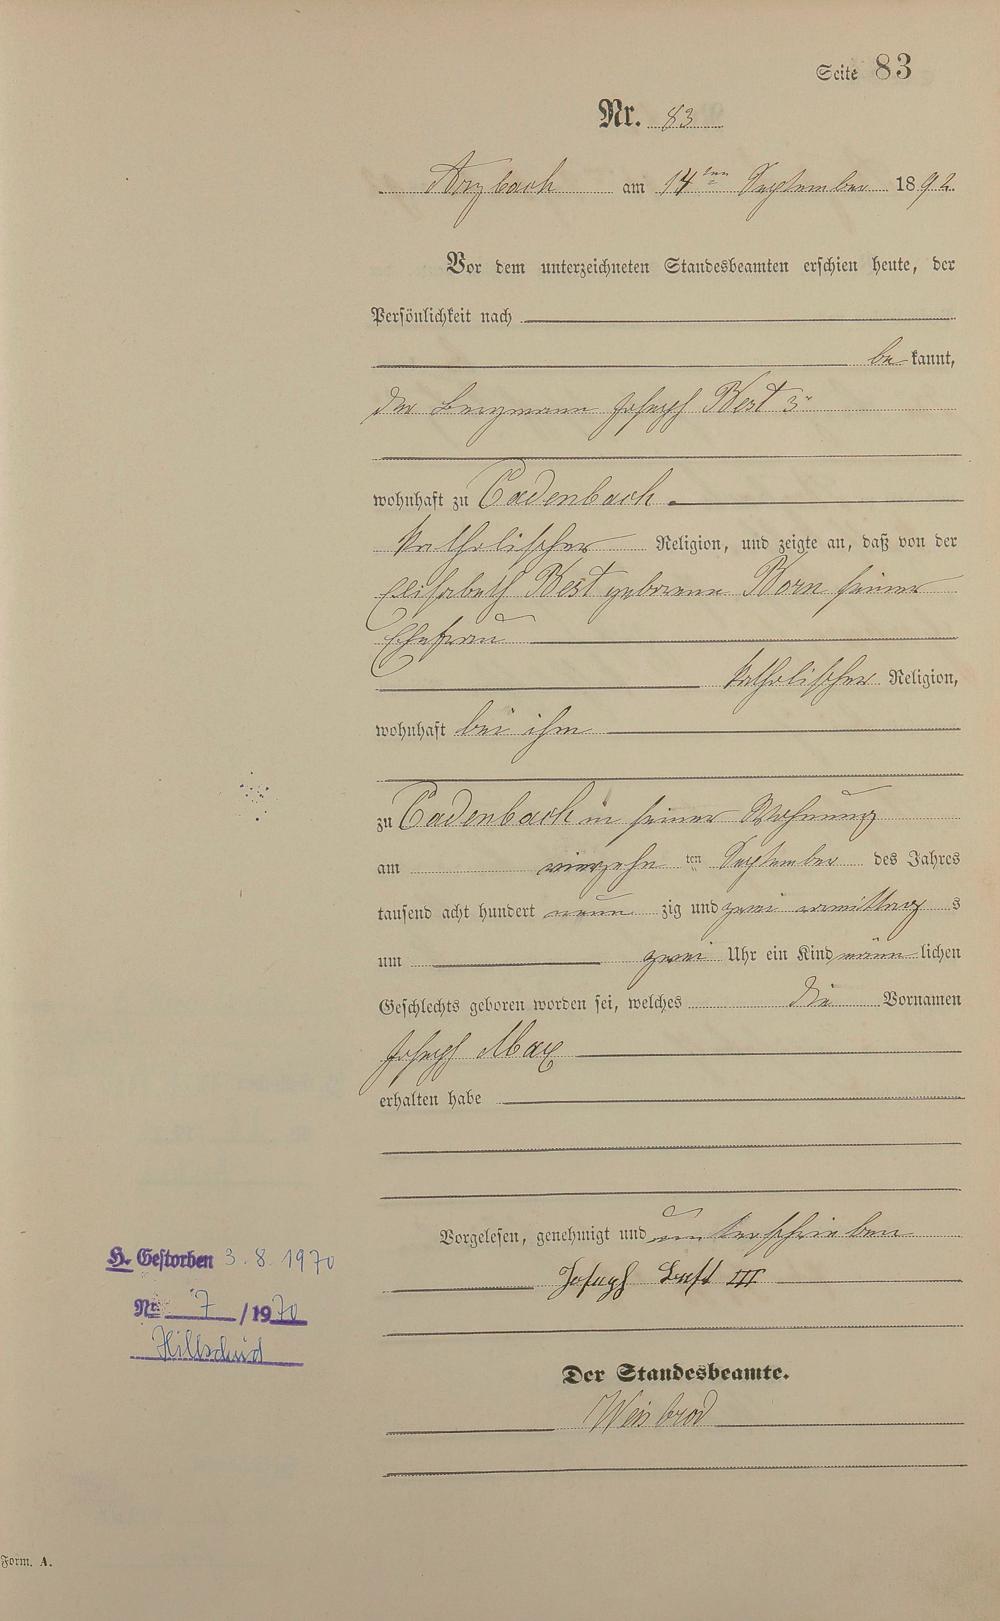 Seite 83
Nr. 83
Arzbach am 14ten September 1892.
Vor dem unterzeichneten Standesbeamten erschien heute, der
Persönlichkeit nach
bekannt,
der Bergmann Joseph Best 3r
wohnhaft zu Cadenbach
katholischer Religion, und zeigte an, daß von der
Elisabeth Best geborene Born seiner
Ehefrau
katholischer Religion,
wohnhaft bei ihm
zu Cadenbach in seiner Wohnung
am vierzehnten September des Jahres
tausend acht hundert neunzig und zwei vormittags
um zwei Uhr ein Kind männlichen
Geschlechts geboren worden sei, welches die Vornamen
Joseph Max
erhalten habe
Vorgelesen, genehmigt und unterschrieben
Joseph Best III
Der Standesbeamte.
Weisbrod
H. Gestorben 3.8.1970
Nr. 7/1970
Hillscheid
Form. A.